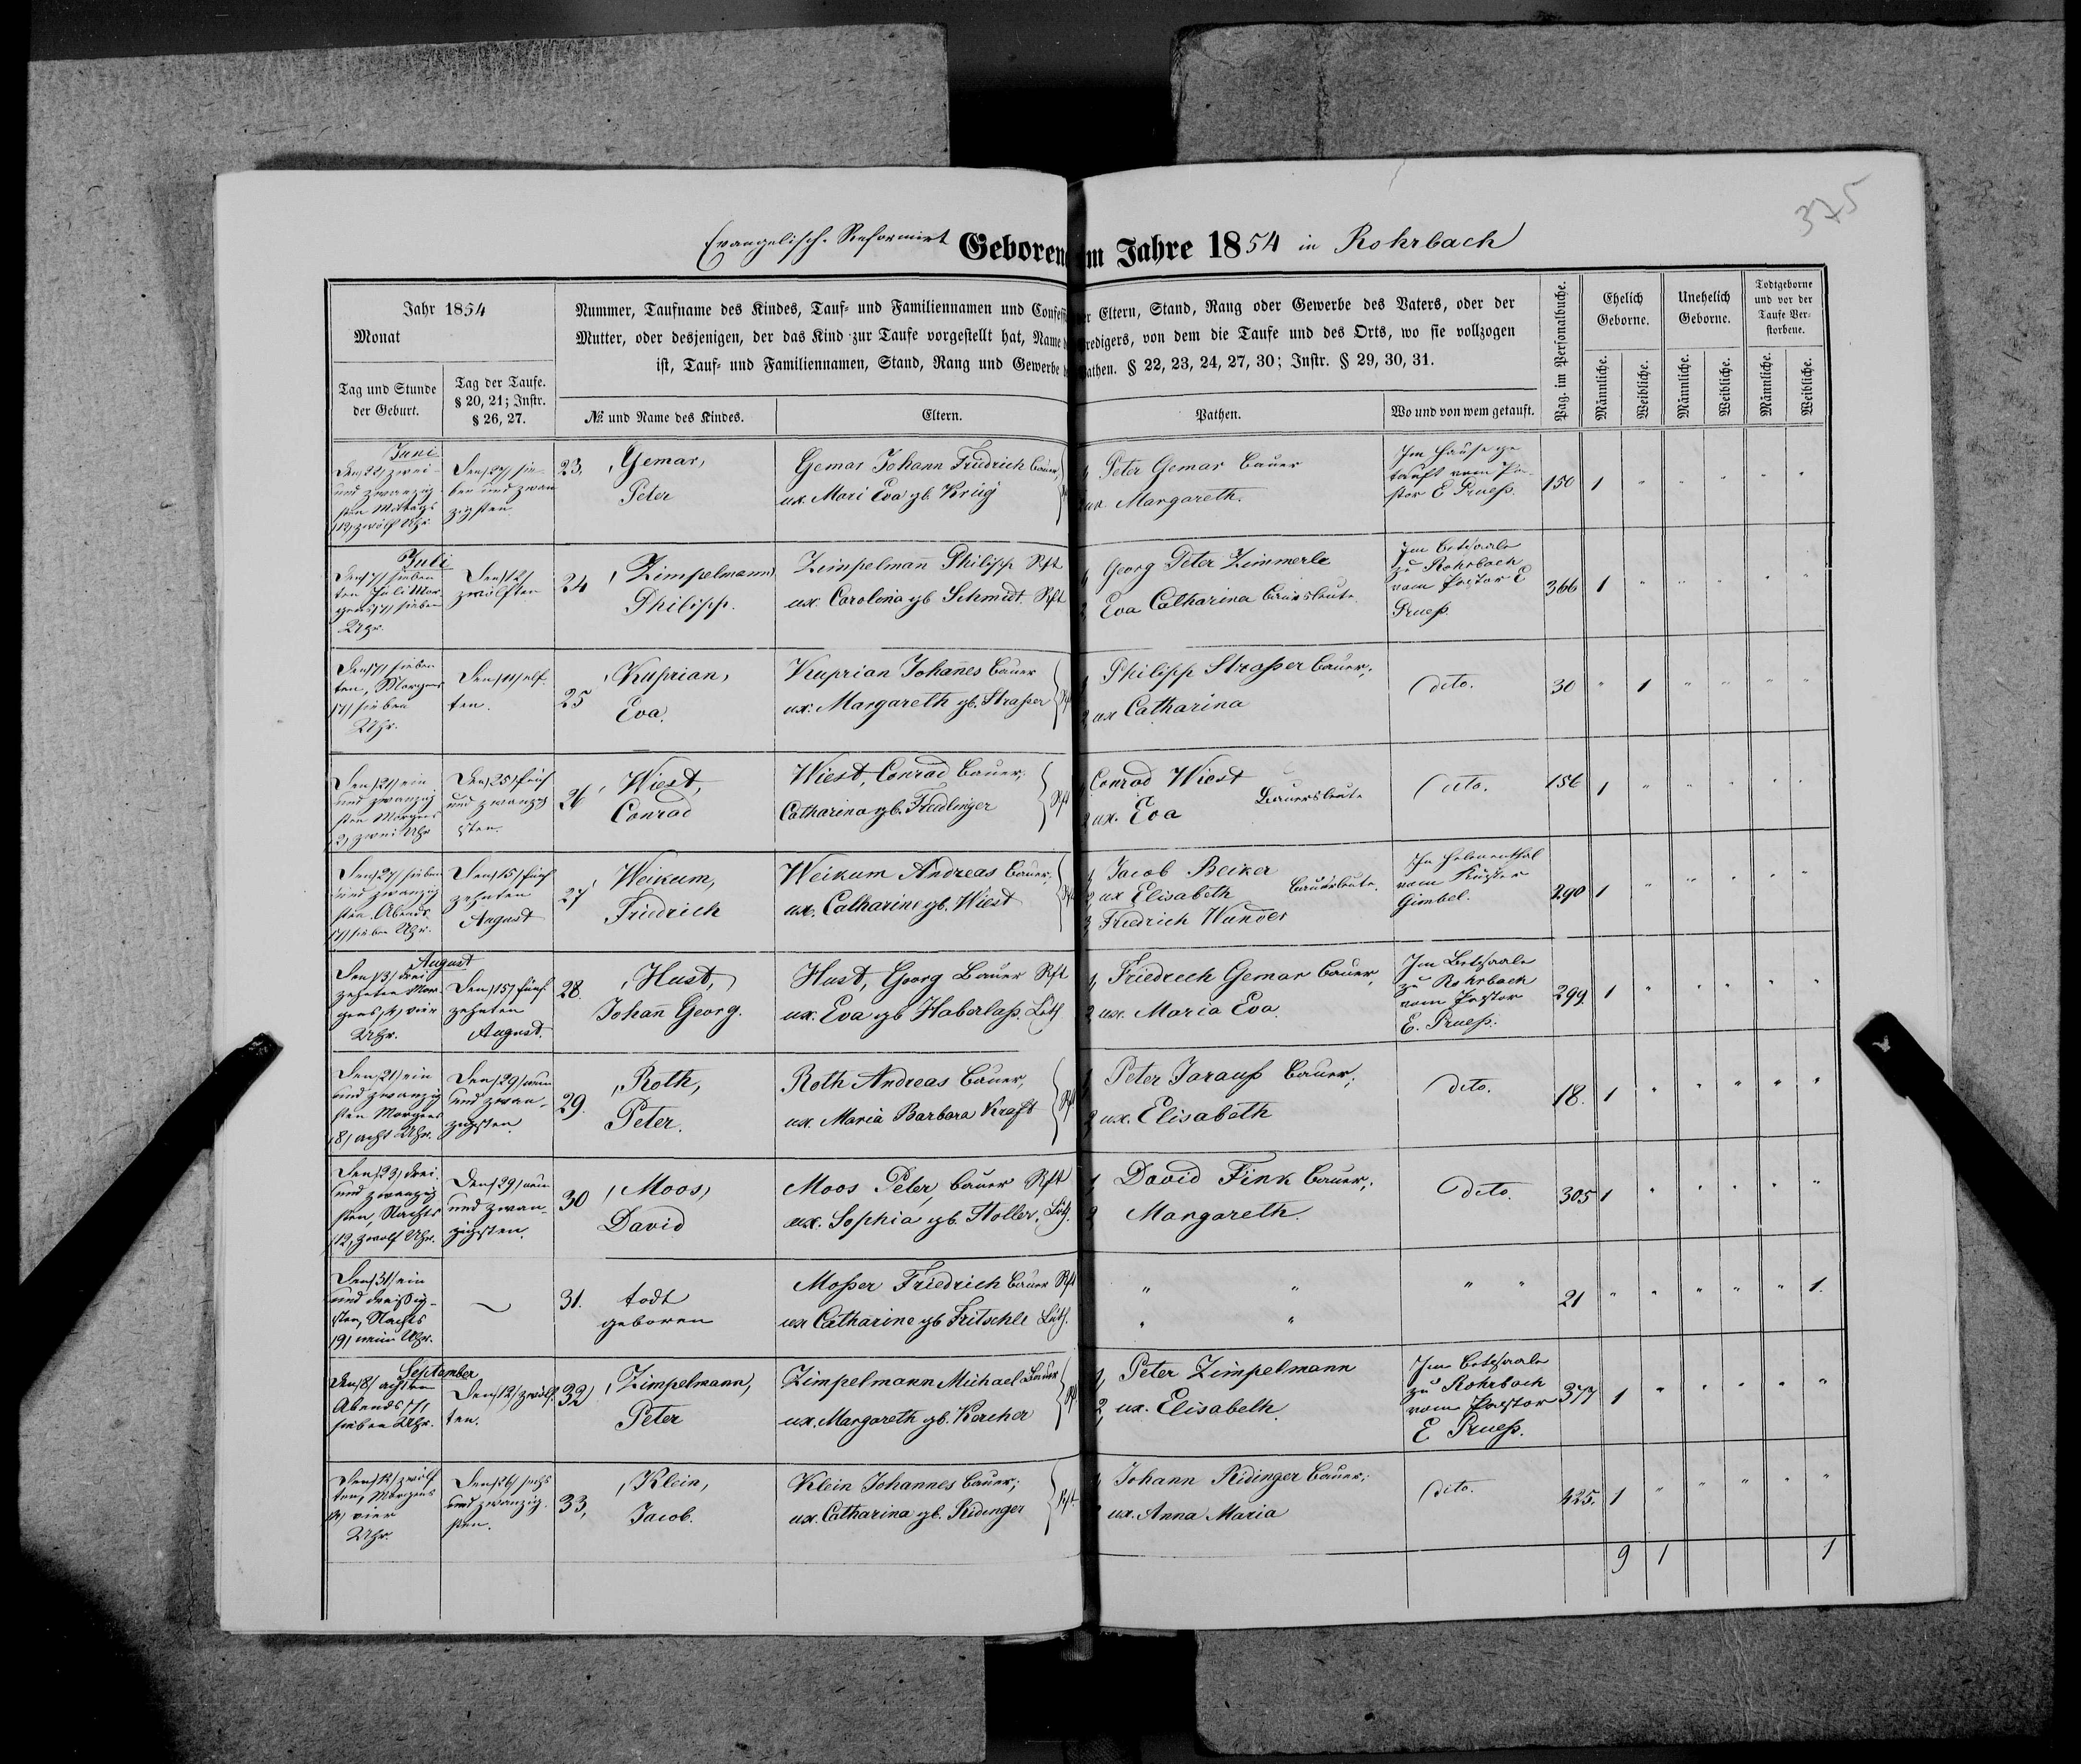 375
Evangelisch-Reformirt Geborene im Jahre 1854 in Rohrbach
Jahr 1854
Monat
Tag und Stunde
der Geburt.
Tag der Taufe.
§ 20, 21; Instr.
§ 26, 27.
Nummer, Taufname des Kindes, Tauf- und Familiennamen und Confess
er Eltern, Stand, Rang oder Gewerbe des Vaters, oder der
Mutter, oder desjenigen, der das Kind zur Taufe vorgestellt hat, Name d
redigers, von dem die Taufe und des Orts, wo sie vollzogen
ist, Tauf- und Familiennamen, Stand, Rang und Gewerbe d
athen. § 22, 23, 24, 27, 30; Instr. § 29, 30, 31.
№ und Name des Kindes.
Eltern.
Pathen.
Wo und von wem getauft.
Pag. im Personalbuche.
Ehelich
Geborne.
Unehelich
Geborne.
Todtgeborne
und vor der
Taufe Ver-
storbene.
Männliche.
Weibliche.
Männliche.
Weibliche.
Männliche.
Weibliche.
Juni
Den 22, zwei-
und zwanzig-
sten Mittags
12, zwölf Uhr.
Den 27, sie-
ben und zwan
zigsten
23. Gemar,
Peter
Gemar Johann Friedrich Bauer,
ux. Mari Eva gb. Krüg
1, Peter Gemar Bauer
ux. Margareth.
Im Hause ge
tauft vom Pa-
stor E Pruess.
150 1 " " " " "
Juli
Den 7, sieben
ten Juli Mor-
gens 7, sieben
Uhr.
Den 12,
zwölften
24 Zimpelmann,
Philipp.
Zimpelmañ Philipp Rft
ux. Carolina gb Schmidt. Rft
1, Georg Peter Zimmerle
2, Eva Catharina Bauersleute
Im Betsaale
zu Rohrbach
vom Pastor E
Pruess.
366 1 " " " " "
Den 7, sieben
ten, Morgens
7, sieben
Uhr.
Den 11, elf-
ten.
25 Kuprian,
Eva.
Kuprian Johañes Bauer
ux. Margareth gb. Strasser Rft
1, Philipp Strasser Bauer,
2, ux Catharina
dito.
30 " 1 " " " "
Den 21, ein
und zwanzig
sten Morgens
2, zwei Uhr
Den 25, fünf
und zwanzig
sten.
26 Wiest,
Conrad
Wiest, Conrad Bauer,
Catharina gb. Freidinger Rft
1, Conrad Wiest
Bauersleute
2 ux. Eva
dito.
156 1 " " " " "
Den 27, sieben
und zwanzig
sten Abends
7, sieben Uhr.
Den 15, fünf
zehnten
August
27 Weikum,
Friedrich
Weikum Andreas Bauer,
ux. Catharine gb. Wiest Rft
1, Jacob Beiker
2 ux Elisabeth Bauersleute.
3, Friedrich Wunder
In Helenenthal
vom Küster
Gimbel.
290 1 " " " " "
August
Den 13, drei
zehnten Mor-
gens, 4, vier
Uhr.
Den 15, fünf
zehnten
August.
28. Hust,
Johañ Georg.
Hust, Georg Bauer Rft
ux. Eva gb Haberlass. Luth
1, Friedrich Gemar Bauer,
2, ux. Maria Eva.
Im Betsaale
zu Rohrbach
vom Pastor
E. Pruess.
299 1 " " " " "
Den 21, ein
und zwanzig
sten Morgens
8, acht Uhr.
Den 29, neun
und zwan-
zigsten.
29. Roth,
Peter.
Roth Andreas Bauer,
ux. Maria Barbara Kraft Rft
1 Peter Jarauss Bauer,
2 ux. Elisabeth
dito.
18. 1 " " " " "
Den 23, drei
und zwanzig
sten, Nachts
12, zwölf Uhr.
Den 29, neun
und zwan-
zigsten.
30 Moos,
David
Moos Peter, Bauer Rft
ux. Sophia gb. Stoller, Luth.
1, David Fink Bauer,
2 Margareth.
dito.
305 1 " " " " "
Den 31, ein
und dreißig-
sten, Nachts
9, neun Uhr.
~
31. todt
geboren
Mosser Friedrich Bauer Rft
ux Catharine gb Fritschle Luth.
" " " "
" "
21 " " " " " 1.
September
Den 8, achten
Abends 7,
sieben Uhr.
Den 12, zwölf-
ten.
32, Zimpelmann,
Peter
Zimpelmann Michael Bauer
ux. Margareth gb. Kercher Rft
1, Peter Zimpelmann
2, ux. Elisabeth.
Im Betsaale
zu Rohrbach
vom Pastor
E Pruess.
377 1 " " " " "
Den 12, zwölf
ten, Morgens
4, vier
Uhr.
Den 26, sechs
und zwanzig-
sten.
33, Klein,
Jacob.
Klein Johannes Bauer;
ux. Catharina gb. Ridinger Rft
1, Johann Ridinger Bauer,
ux. Anna Maria
dito.
425. 1 " " " " "
9 1 1